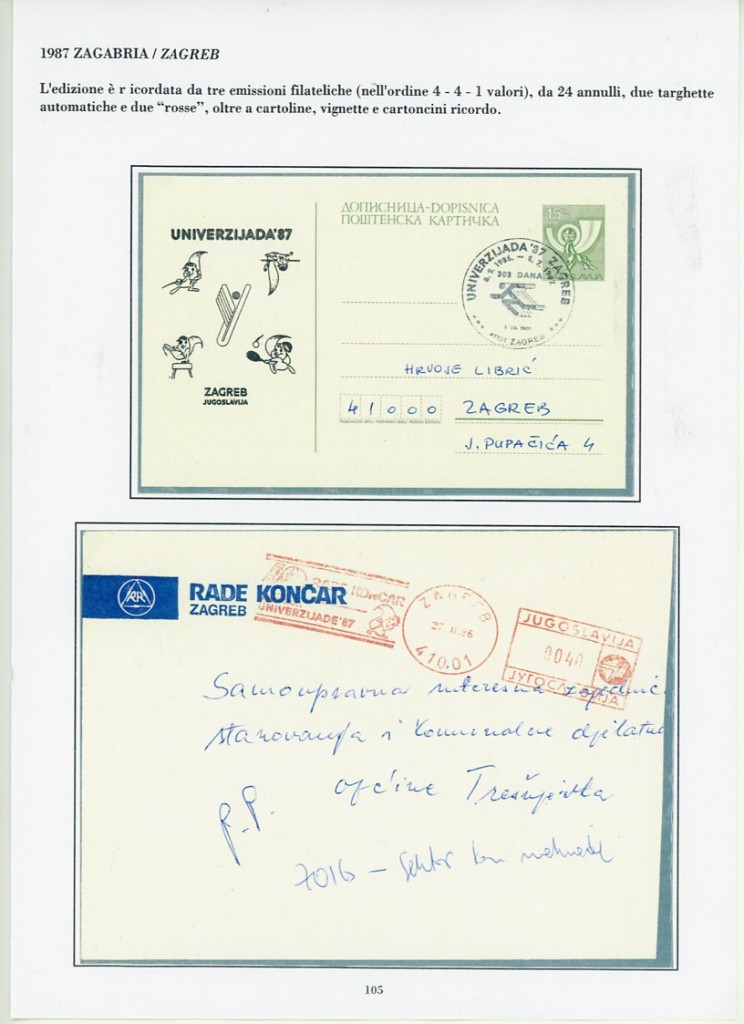 1987 ZAGABRIA / ZAGREB
L'edizione è r icordata da tre emissioni filateliche (nell'ordine 4 - 4 - 1 valori), da 24 annulli, due targhette
automatiche e due “rosse”, oltre a cartoline, vignette e cartoncini ricordo.
UNIVERZIJADA'87
ZAGREB
JUGOSLAVIJA
ДОПИСНИЦА-DOPISNICA
ПОШТЕНСКА КАРТИЧКА
15
UNIVERZIJADA'87 ZAGREB
303 DANA
ZAGREB
HRVOJE LIBRIĆ
41000 ZAGREB
J. PUPAČIĆA 4
RADE KONČAR
ZAGREB
RADE KONČAR
UNIVERZIJADE'87
ZAGREB
41001
JUGOSLAVIJA
0040
ЈУГОСЛАВИЈА
Samoupravna interesna zajednic
stanovanja i komunalne djelatno
općine Trešnjevka
P.P.
7016 –
105